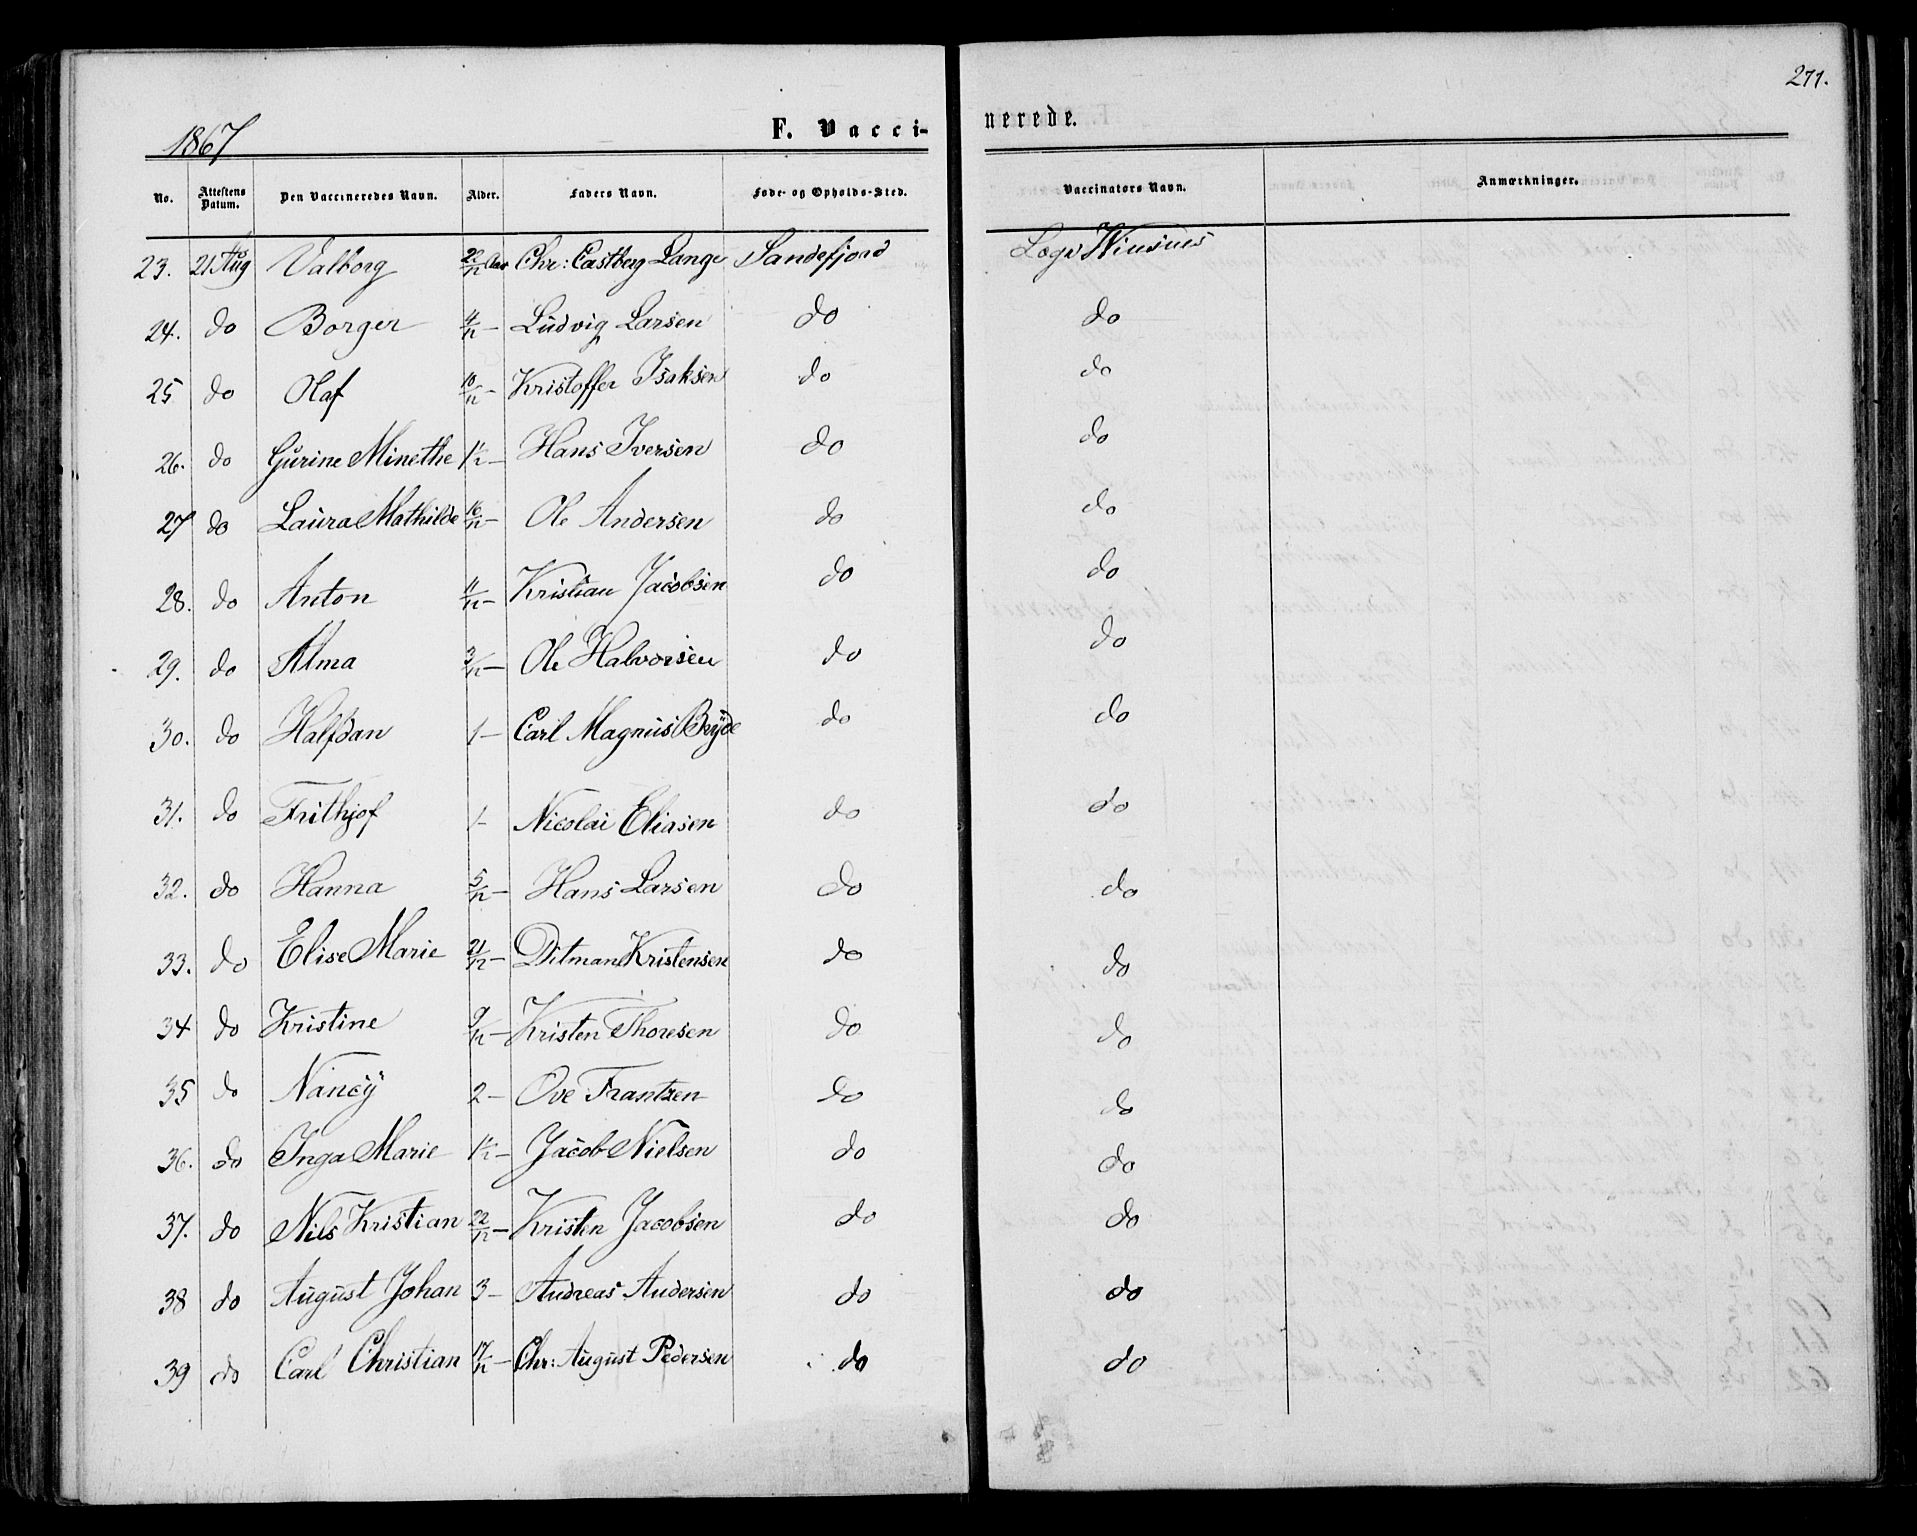 271.
1867 F. Vacci- nerede.
No. Attestens Datum. Den Vaccineredes Navn. Alder. Faders Navn. Føde- og Opholds-Sted. Vaccinators Navn. Anmærkninger.
23. 21 Aug Valborg 22/12 Aar Chr: Castberg Lange Sandefjord Læge
24. do Borger 4/12 – Ludvig Larsen do do
25 do Olaf 10/12 – Kristoffer Isaksen do do
26. do Gurine Minethe 1½ – Hans Iversen do do
27 do Laura Mathilde 16/12 – Ole Andersen do do
28. do Anton 11/12 – Kristian Jacobsen do do
29. do Alma 3/12 – Ole Halvorsen do do
30. do Halfdan 1 – Carl Magnus Bryde do do
31. do Frithjof 1 – Nicolai Eliasen do do
32. do Hanna 5/12 – Hans Larsen do do
33. do Elise Marie 21/12 – Ditman Kristensen do do
34 do Kristine 9/12 – Kristen Thoresen do do
35 do Nancy 2 – Ove Frantzen do do
36. do Inga Marie 1½ – Jacob Nielsen do do
37. do Nils Kristian 22/12 – Kristen Jacobsen do do
38 do August Johan 3 – Andreas Andersen do do
39 do Carl Christian 17/12 – Chr: August Pedersen do do